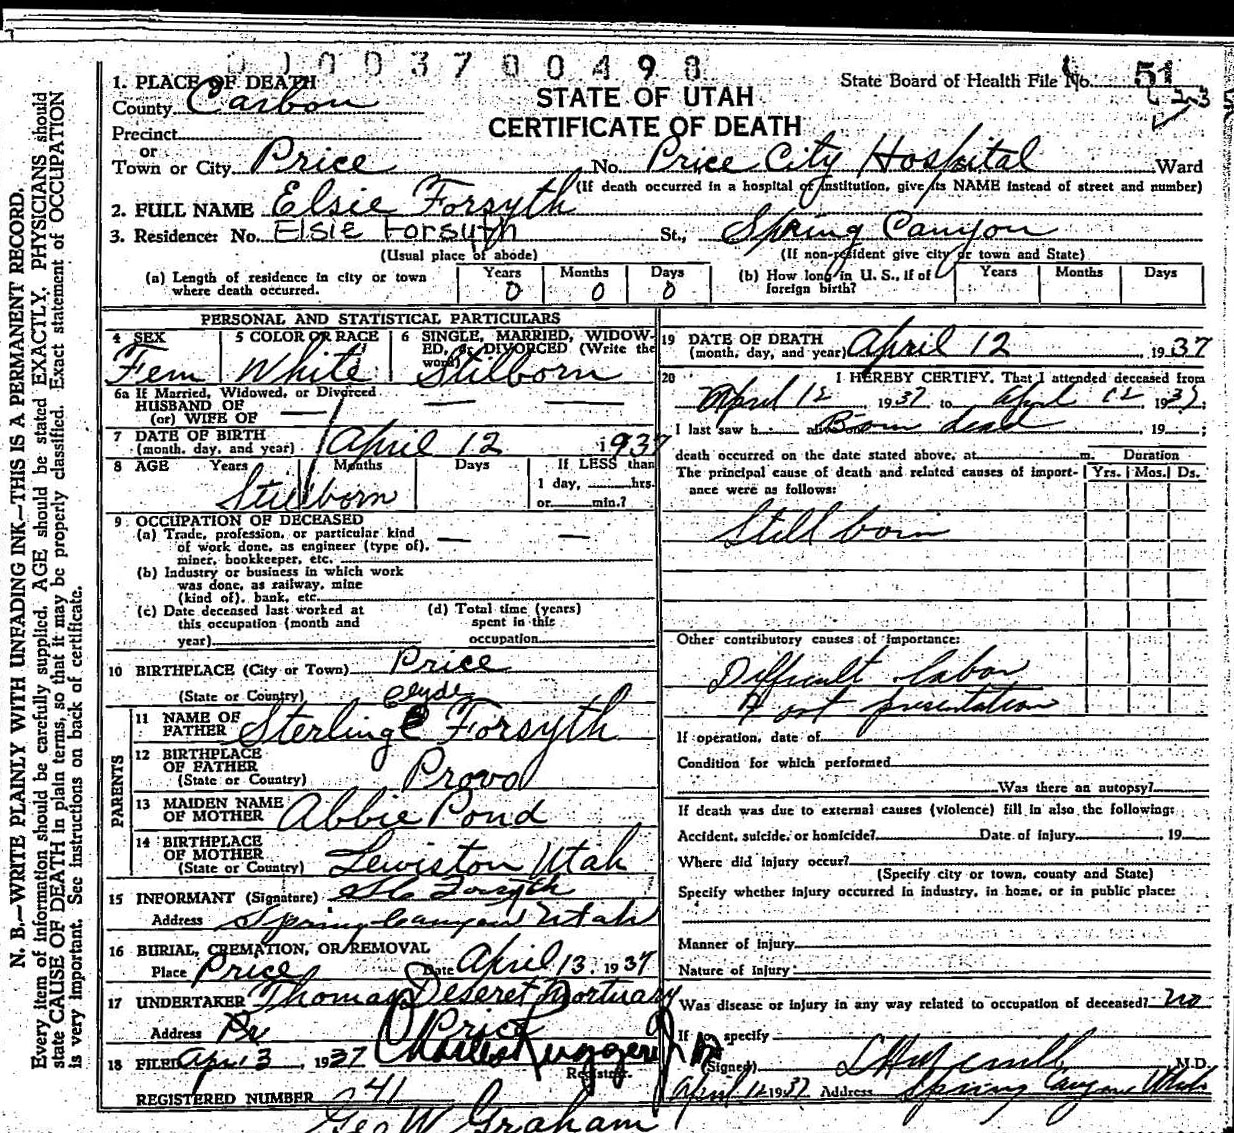 0003700498
State Board of Health File No. 51
STATE OF UTAH
CERTIFICATE OF DEATH
1. PLACE OF DEATH
County Carbon
Precinct
or
Town or City Price No. Price City Hospital Ward
(If death occurred in a hospital or institution, give its NAME instead of street and number)
2. FULL NAME Elsie Forsyth
3. Residence: No. Elsie Forsyth St., Spring Canyon
(Usual place of abode) (If non-resident give city or town and State)
(a) Length of residence in city or town where death occurred. Years 0 Months 0 Days 0
(b) How long in U. S., if of foreign birth? Years Months Days
PERSONAL AND STATISTICAL PARTICULARS
4 SEX Fem
5 COLOR OR RACE White
6 SINGLE, MARRIED, WIDOWED, or DIVORCED (Write the word) Stilborn
6a If Married, Widowed, or Divorced
HUSBAND OF —
(or) WIFE OF
7 DATE OF BIRTH
(month, day, and year) April 12 1937
8 AGE Years Months Days If LESS than
1 day, hrs.
or min.?
Stillborn
9 OCCUPATION OF DECEASED
(a) Trade, profession, or particular kind
of work done, as engineer (type of),
miner, bookkeeper, etc. — —
(b) Industry or business in which work
was done, as railway, mine
(kind of), bank, etc.
(c) Date deceased last worked at
this occupation (month and
year)
(d) Total time (years)
spent in this
occupation
10 BIRTHPLACE (City or Town) Price
(State or Country)
Clyde
11 NAME OF FATHER Sterling Forsyth
12 BIRTHPLACE OF FATHER
(State or Country) Provo
13 MAIDEN NAME OF MOTHER Abbie Pond
14 BIRTHPLACE OF MOTHER
(State or Country) Lewiston Utah
PARENTS
15 INFORMANT (Signature) Forsyth
Address Spring Canyon Utah
16 BURIAL, CREMATION, OR REMOVAL
Place Price Date April 13, 1937
17 UNDERTAKER Thomas Deseret Mortuary
Address Pr Price
18 FILED Apr 13, 1937 Charles Ruggeri Jr
Registrar.
REGISTERED NUMBER 41
Geo W Graham
19 DATE OF DEATH
(month, day, and year) April 12 1937
20 I HEREBY CERTIFY, That I attended deceased from
April 12 1937 to April 12, 1937;
I last saw h alive on Born dead, 19 ;
death occurred on the date stated above, at m.
The principal cause of death and related causes of importance were as follows:
Duration
Yrs. Mos. Ds.
Still born
Other contributory causes of importance:
Difficult labor
post presentation
If operation, date of
Condition for which performed
Was there an autopsy?
If death was due to external causes (violence) fill in also the following:
Accident, suicide, or homicide? Date of injury , 19
Where did injury occur?
(Specify city or town, county and State)
Specify whether injury occurred in industry, in home, or in public place:
Manner of Injury
Nature of Injury
Was disease or injury in any way related to occupation of deceased? no
If so, specify
(Signed) M.D.
April 12 1937 Address Spring Canyon, Utah
N. B.—WRITE PLAINLY WITH UNFADING INK—THIS IS A PERMANENT RECORD.
Every item of information should be carefully supplied. AGE should be stated EXACTLY, PHYSICIANS should
state CAUSE OF DEATH in plain terms, so that it may be properly classified. Exact statement of OCCUPATION
is very important. See instructions on back of certificate.